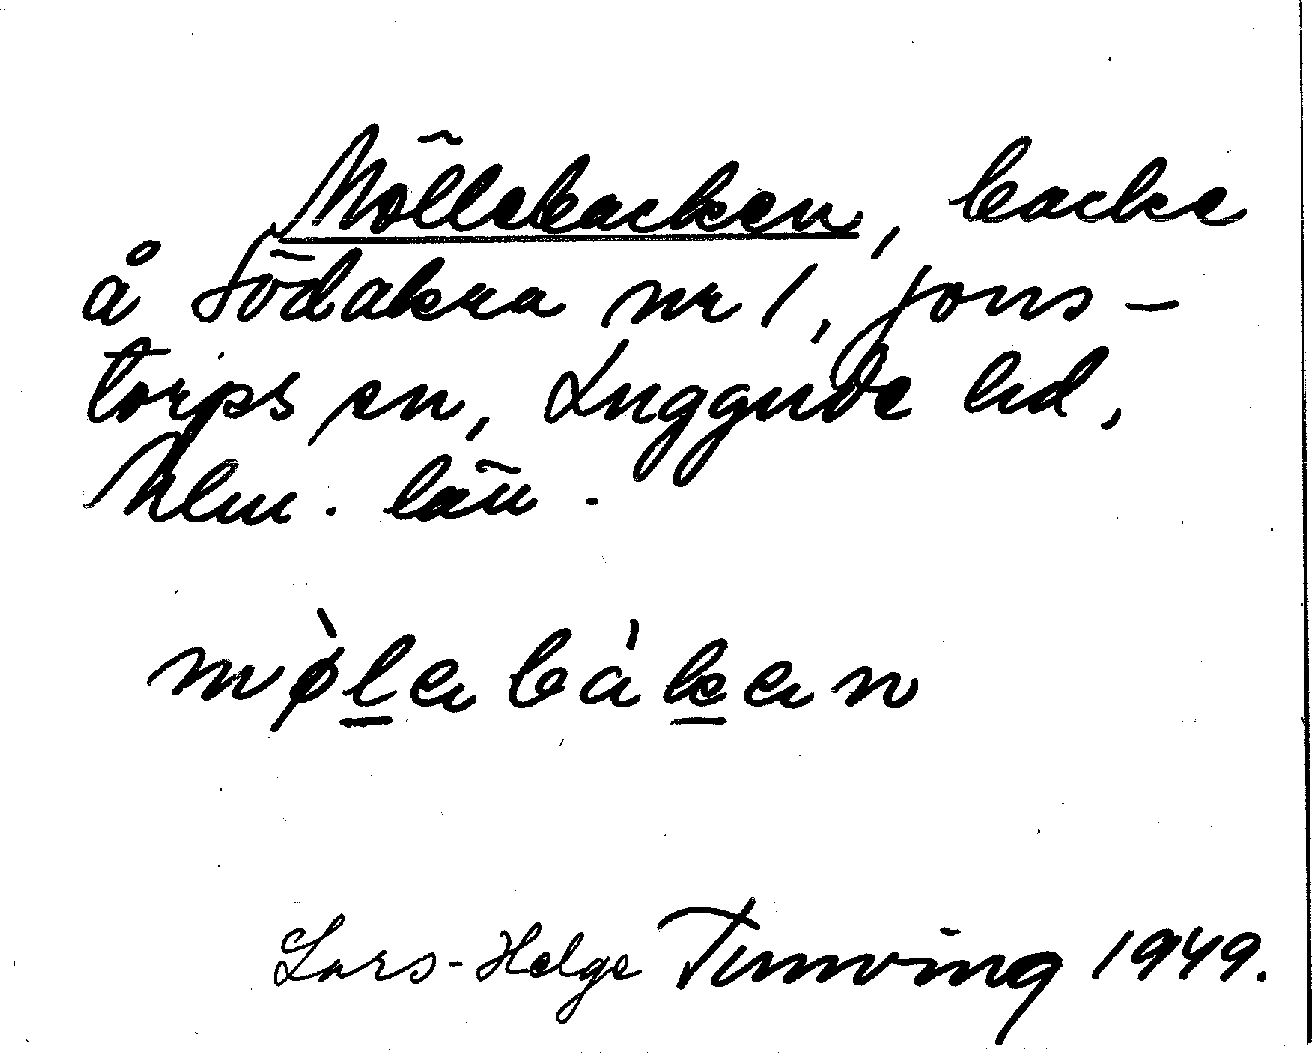 Möllebacken, backe
å Södåkra nr 1, Jons-
torps sn, Luggude hd,
Mlm. län.
mø̀lebàken
Lars-Helge Tunving 1949.